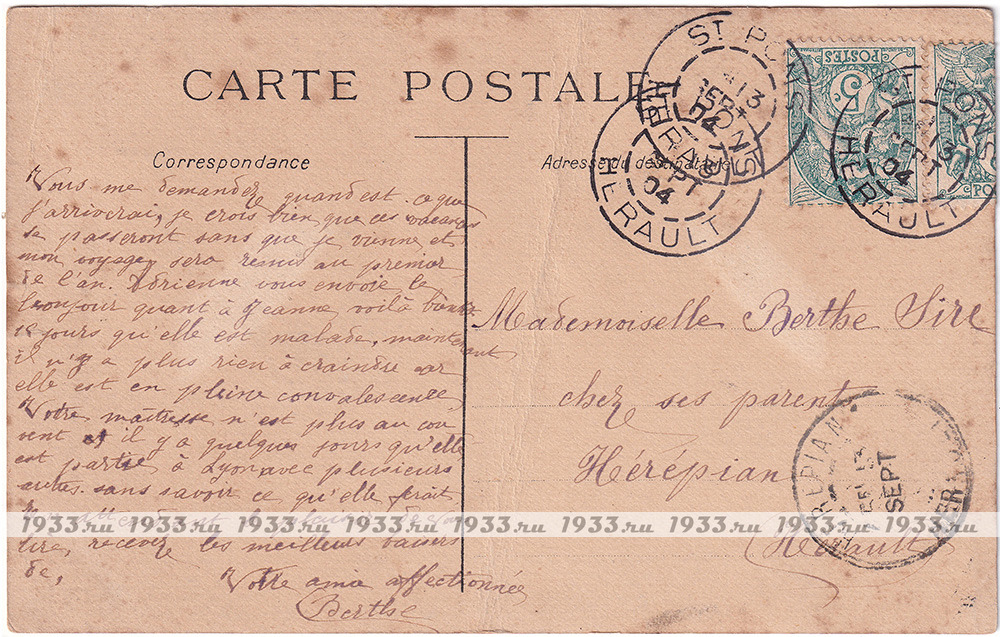 CARTE POSTALE
Correspondance
Adresse du destinataire
ST PONS
13
SEPT
04
HERAULT
ST PONS
SEPT
04
HERAULT
PONS
13
SEPT
04
HERAULT
POSTES
5
PO
Vous me demandez quand est-ce que
j'arriverai, je crois bien que ces vacances
se passeront sans que je vienne et
mon voyage sera remis au premier
de l'an. Adrienne vous envoie le
bonjour quant à Jeanne voilà
15 jours qu'elle est malade, maintenant
il n'y a plus rien à craindre car
elle est en pleine convalescence,
Votre maîtresse n'est plus au cou
vent et il y a quelques jours qu'elle
est partie à Lyon avec plusieurs
autres sans savoir ce qu'elle ferait
lire, recevez les meilleurs baisers
de,
Votre amie affectionnée
Berthe
Mademoiselle Berthe Sire
chez ses parents
Hérépian
Hérault
HEREPIAN
SEPT
HER
1933.ru 1933.ru 1933.ru 1933.ru 1933.ru 1933.ru 1933.ru 1933.ru 1933.ru